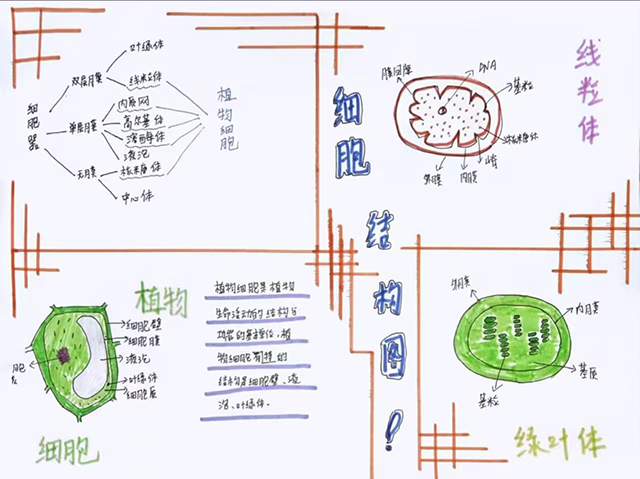 细胞器
双层膜
叶绿体
线粒体
单层膜
内质网
高尔基体
溶酶体
液泡
无膜
核糖体
中心体
植物细胞
细胞
结构图!
线粒体
膜间隙
DNA
基粒
核糖体
嵴
内膜
外膜
植物
细胞
细胞壁
细胞膜
液泡
叶绿体
细胞质
植物细胞是植物
生命活动的结构与
功能的基本单位,植
物细胞 的
结构是细胞壁、液
泡、叶绿体.
外膜
内膜
基质
基粒
绿叶体